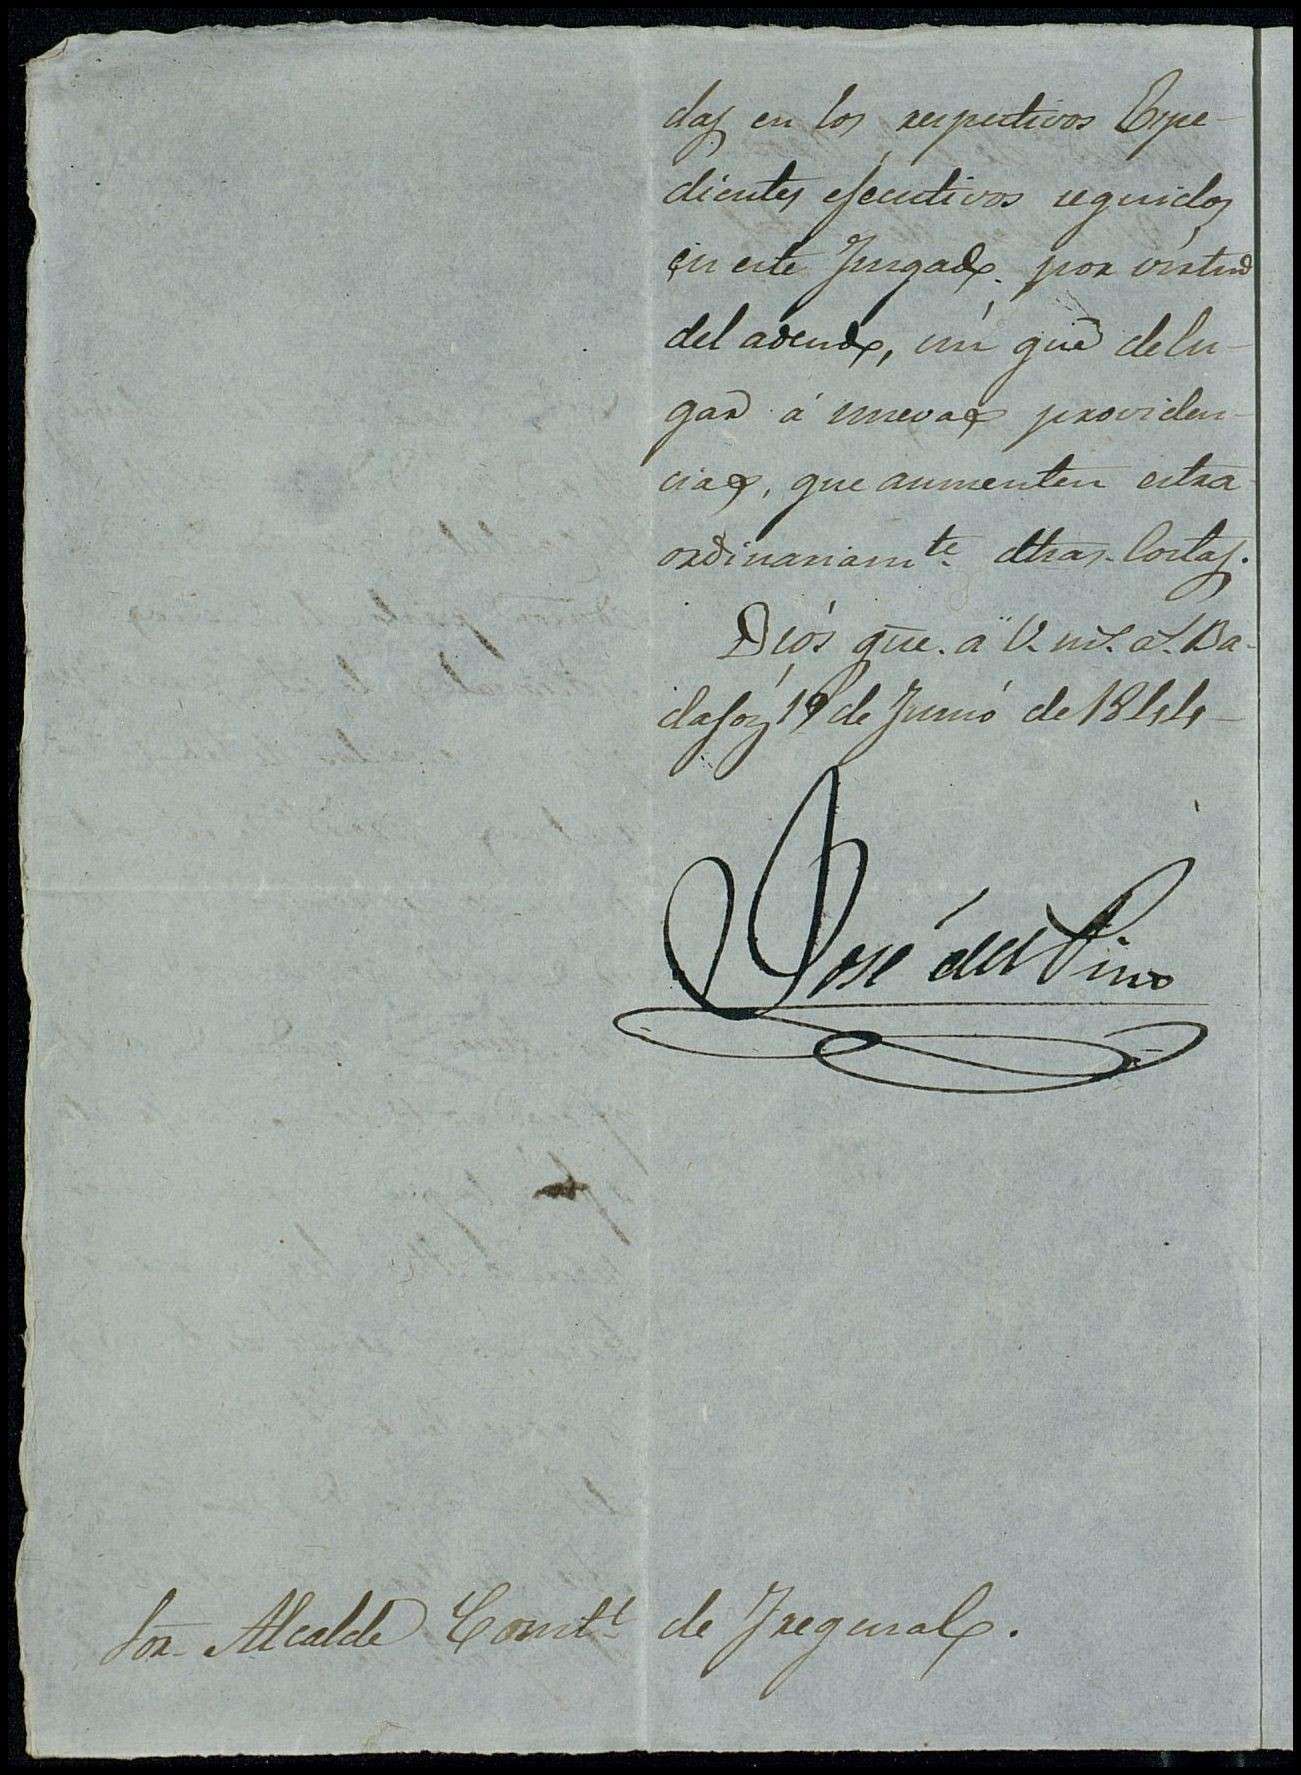 das en los respectivos Espe-
dientes ejecutivos seguidos
en este Juzgado por virtud
del adeudo, sin que de lu-
gar á nuevas providen-
cias, que aumenten estra-
ordinariamte dhas. Costas.
Diós gue. á V. ms. as. Ba-
dajoz 19 de Junió de 1844-
José del Pino
Sor. Alcalde Constl de Fregenal.